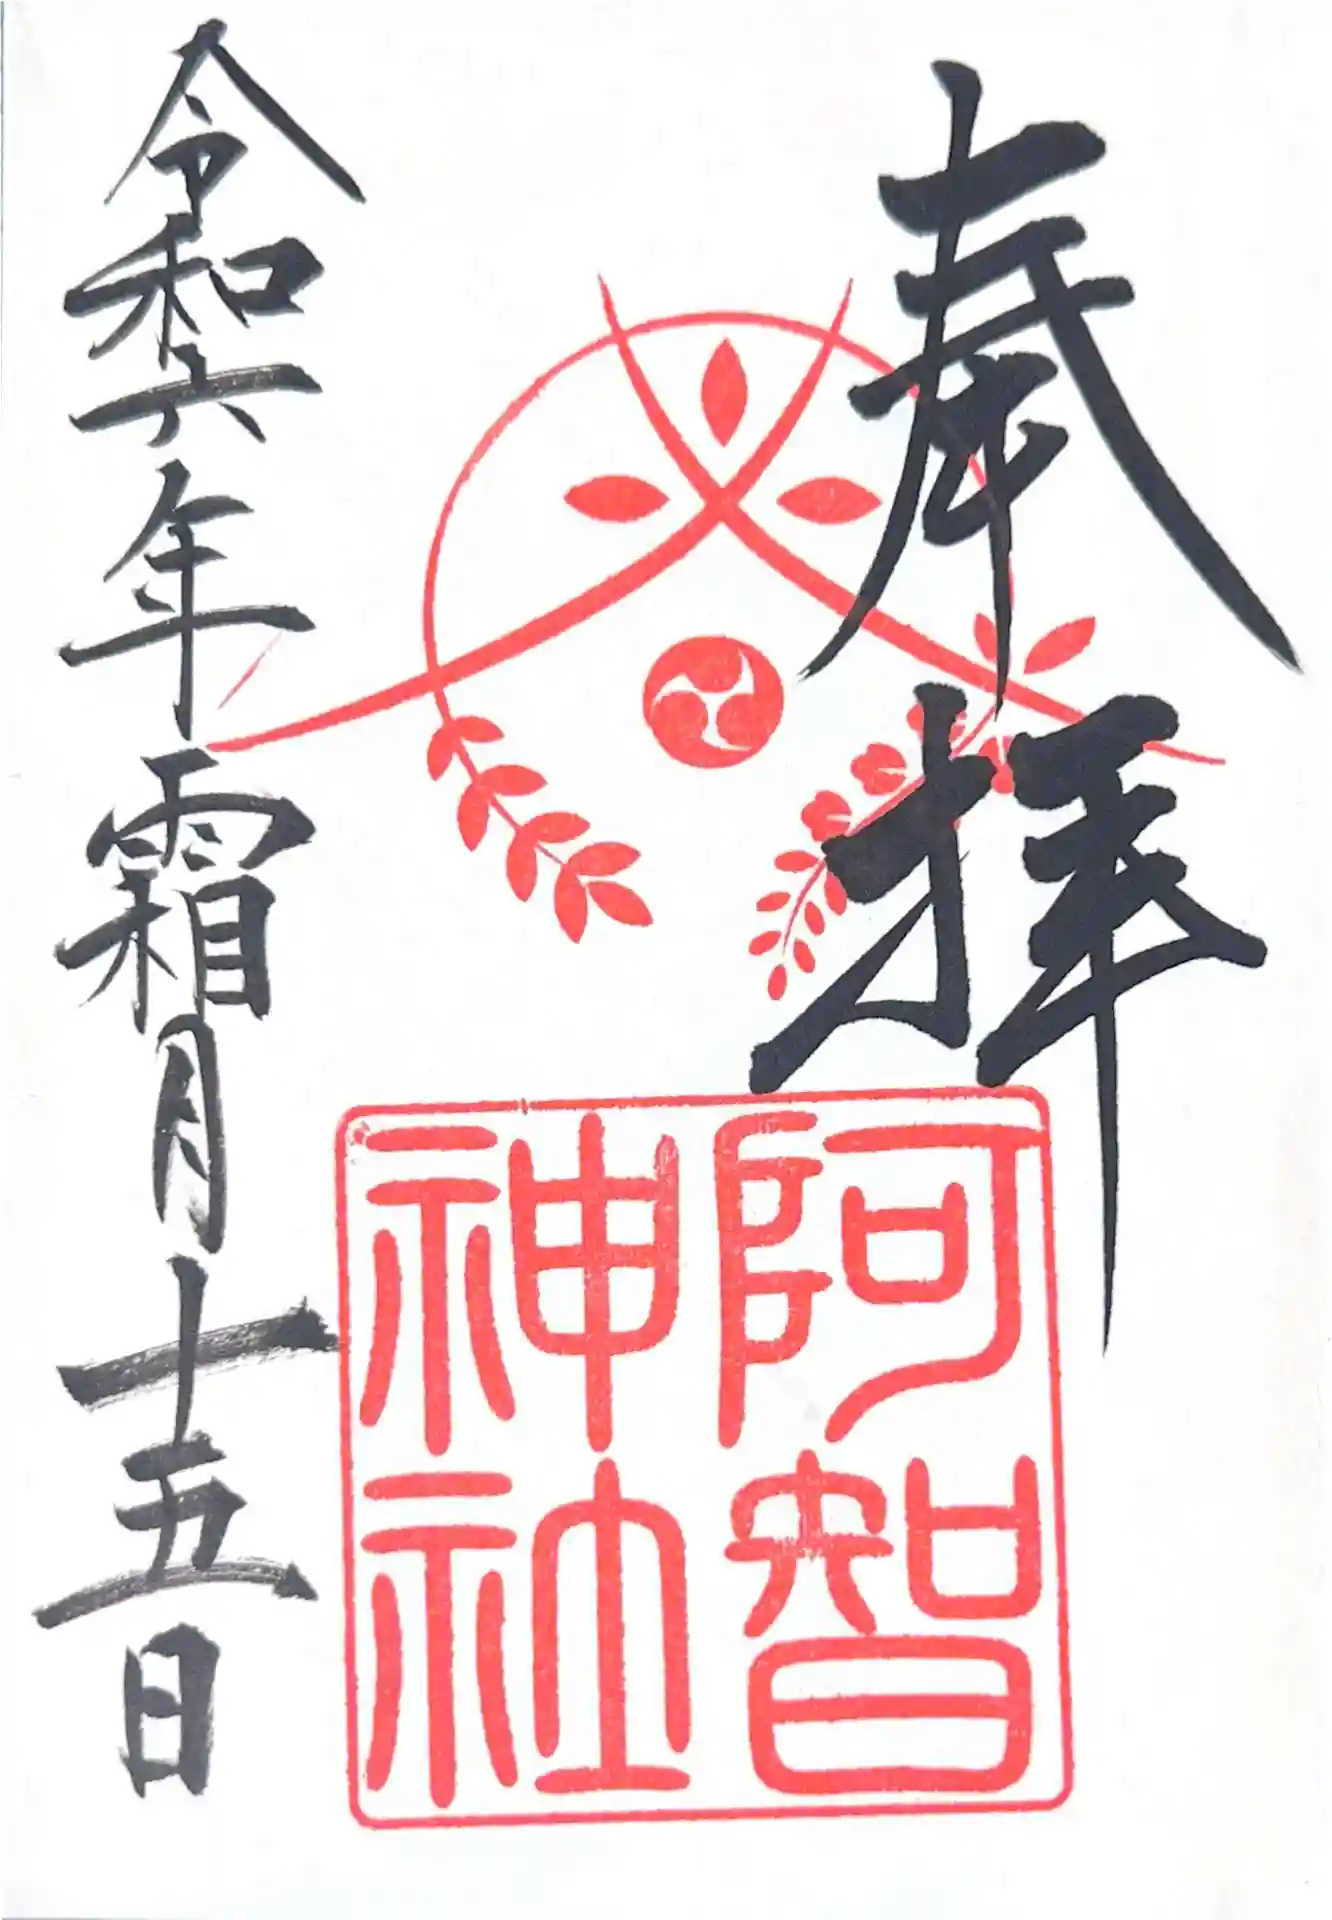 奉拝
阿智
神社
令和六年霜月十五日